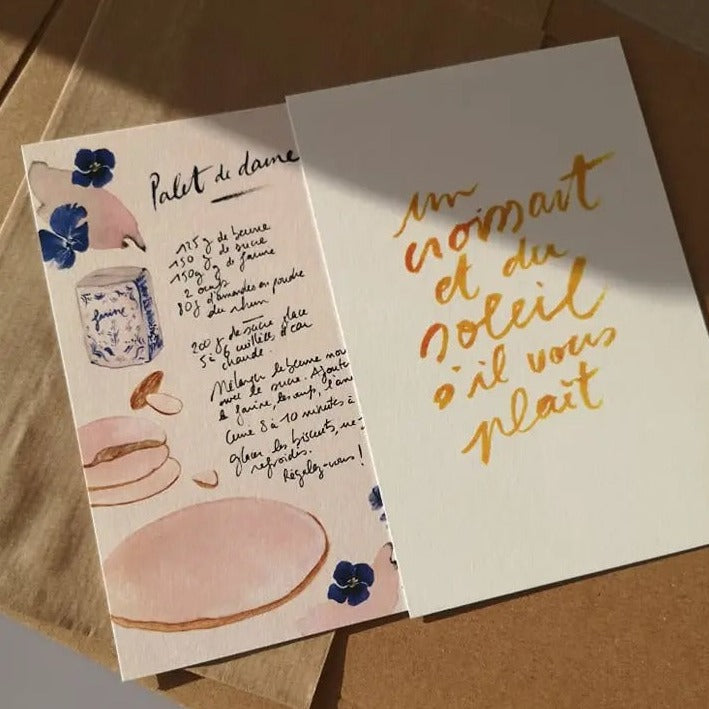 Palet de dame
125 g de beurre
150 g de sucre
150 g de farine
2 oeufs
80 g d'amandes en poudre
du rhum
200 g de sucre glace
5 à 6 cuillères d'eau
chaude.
Mélanger le beurre mou
avec le sucre. Ajouter
la farine, les oeufs, l'am
Cuire 8 à 10 minutes à
glacer les biscuits,
refroidis.
Régalez-vous !
farine
un
croissant
et du
soleil
s'il vous
plaît